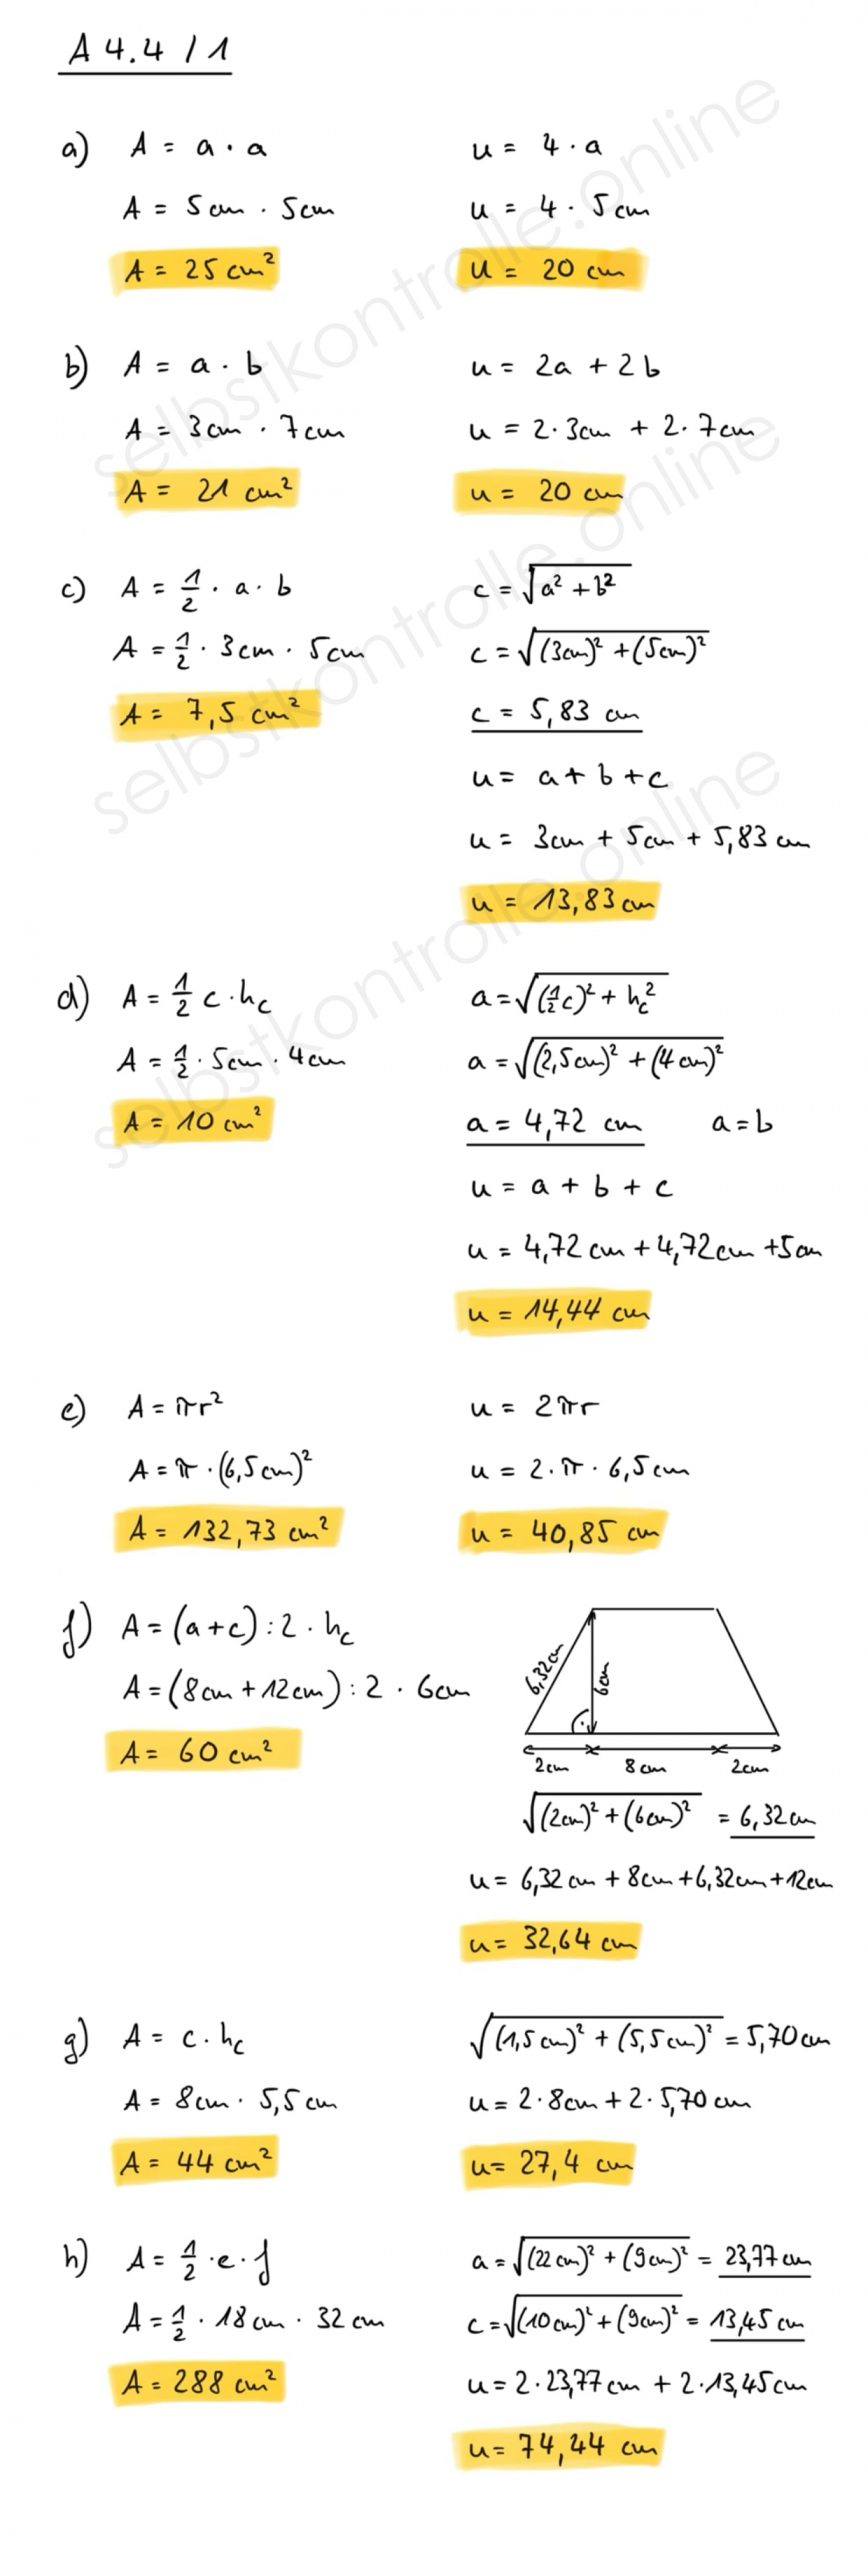 A 4.4 / 1
a) A = a · a
A = 5cm · 5cm
A = 25 cm²
u = 4 · a
u = 4 · 5 cm
u = 20 cm
b) A = a · b
A = 3cm · 7cm
A = 21 cm²
u = 2a + 2b
u = 2·3cm + 2·7cm
u = 20 cm
c) A = 1/2 · a · b
A = 1/2 · 3cm · 5cm
A = 7,5 cm²
c = √(a² + b²)
c = √((3cm)² + (5cm)²)
c = 5,83 cm
u = a + b + c
u = 3cm + 5cm + 5,83 cm
u = 13,83 cm
d) A = 1/2 c · h_c
A = 1/2 · 5cm · 4cm
A = 10 cm²
a = √((1/2 c)² + h_c²)
a = √((2,5cm)² + (4cm)²)
a = 4,72 cm a = b
u = a + b + c
u = 4,72 cm + 4,72 cm + 5cm
u = 14,44 cm
e) A = πr²
A = π · (6,5cm)²
A = 132,73 cm²
u = 2πr
u = 2·π · 6,5cm
u = 40,85 cm
f) A = (a+c) : 2 · h_c
A = (8cm + 12cm) : 2 · 6cm
A = 60 cm²
6,32cm
6cm
2cm 8cm 2cm
√((2cm)² + (6cm)²) = 6,32cm
u = 6,32 cm + 8cm + 6,32cm + 12cm
u = 32,64 cm
g) A = c · h_c
A = 8cm · 5,5 cm
A = 44 cm²
√((1,5cm)² + (5,5cm)²) = 5,70cm
u = 2·8cm + 2·5,70 cm
u = 27,4 cm
h) A = 1/2 · e · f
A = 1/2 · 18cm · 32 cm
A = 288 cm²
a = √((22cm)² + (9cm)²) = 23,77cm
c = √((10cm)² + (9cm)²) = 13,45 cm
u = 2·23,77cm + 2·13,45cm
u = 74,44 cm
selbstkontrolle.online
selbstkontrolle.online
selbstkontrolle.online